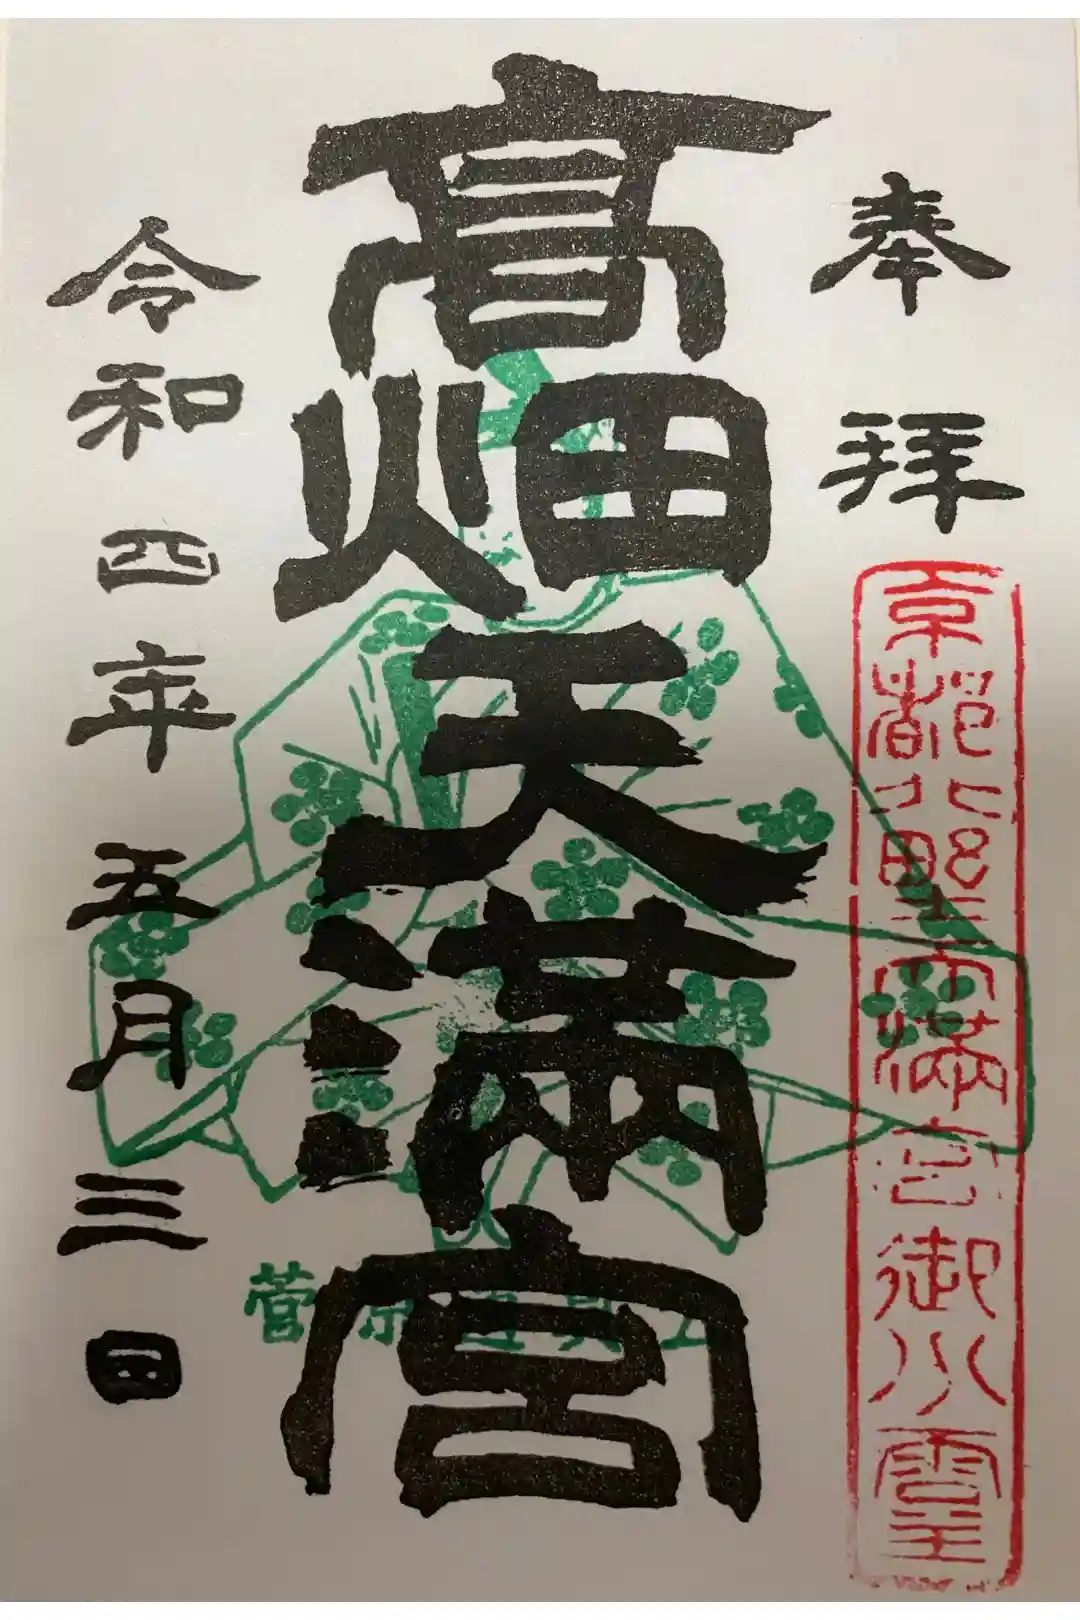 奉拝
京都北野天満宮御分霊
髙畑天満宮
菅原道真公
令和四年五月三日